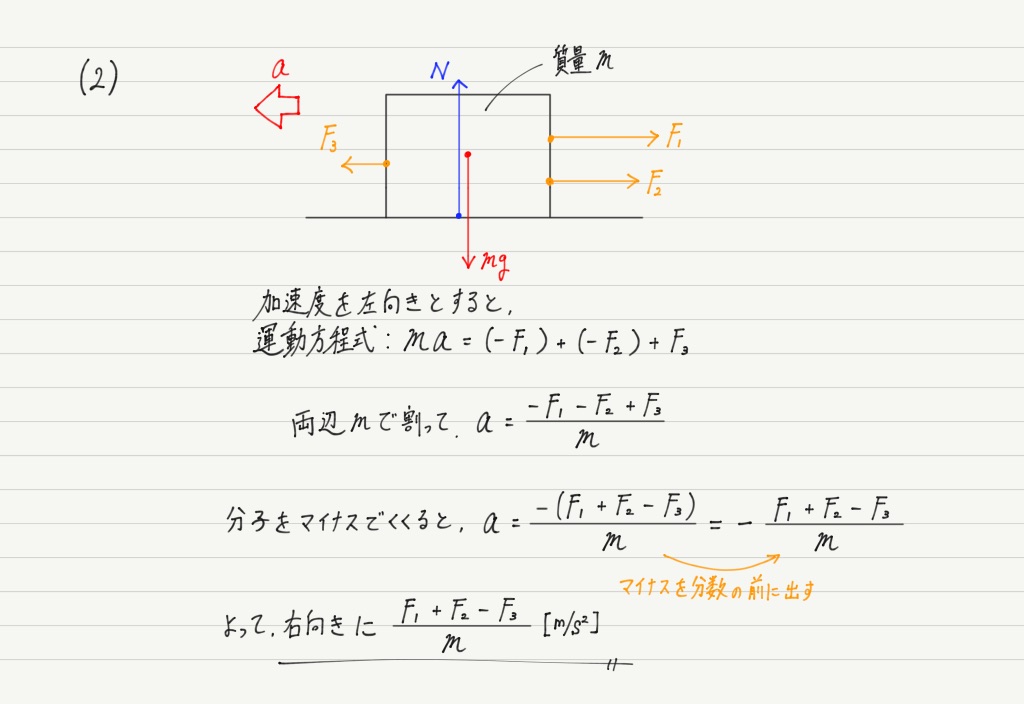 (2)
a
N
質量 m
F₃
F₁
F₂
mg
加速度を左向きとすると,
運動方程式: ma = (-F₁) + (-F₂) + F₃
両辺mで割って, a = (-F₁ - F₂ + F₃)/m
分子をマイナスでくくると, a = -(F₁ + F₂ - F₃)/m = - (F₁ + F₂ - F₃)/m
マイナスを分数の前に出す
よって, 右向きに (F₁ + F₂ - F₃)/m [m/s²]